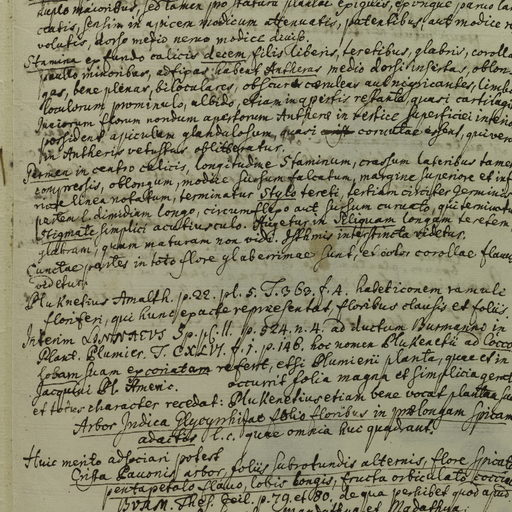 duplo majoribus, sed tamen pro statura plantae exiguis, eorumque parvo
ctatis, sensim in apicem modicum attenuatis, patentibus aut modice re
volutis, dorso medio nervo modice diviso.
Stamina ex fundo calicis decem, filis liberis, teretibus, glabris, corolla
paullo minoribus, ad apices habent Antheras medio dorsi insertas, oblon-
gas, bene plenas, biloculares, obscure caeruleas aut nigricantes, limbo
loculorum prominulo, albido, etiam in apertis restante, quasi cartilagi
Juniorum florum nondum apertorum Antherae in vertice superficiei interio
possident apiculum glandulosum, quasi coruleae essent, qui vero
in Antheris vetustis obliteratur.
Germen in centro calicis, longitudine Staminum, crassum lateribus tamen
compressis, oblongum, modice sursum falcatum, margine superiore et inf
riore linea notatum, terminatur Stylo tereti, tertiam circiter Germinis
partem l. dimidiam longo, circumflexo aut sursum curvato, qui terminatur
Stigmate simplici acutiusculo. Augetur in Siliquam longam teretem
glabram, quam maturam non vidi. Isthmis interstincta videtur.
Cunctae partes in toto flore glaberrimae sunt, et color corollae flavus
videtur.
Pluknetius Amalth. p. 22. pl. 5. T. 363. f. 4. habet iconem ramuli
floriferi, qui hunc exacte repraesentat, floribus clausis et foliis.
Interim LINNAEUS Sp. pl. II. p. 524. n. 4. ad ductum Burmanno in
Plant. Plumier. T. CXLVI. f. 1. p. 146. hoc nomen Pluknetii ad Cocco
lobam suam excoriatam refert, etsi Plumierii planta, quae et in
Jacquini Pl. Americ. occurrit folia magna et simplicia gerat
et totus character recedat: Pluknetius etiam bene vocat plantam suam
Arbor Indica Glycyrrhizae folio floribus in prolongam spicam
adactis l. c. quae omnia huc quadrant.
Huic merito adsociari potest
Crista Pavonis arbor, foliis subrotundis alternis, flore spicato
pentapetalo flavo, lobis longis, fructu orbiculato coccineo
BURM. Thes. Zeil. p. 79. et 80. de qua perhibet quod apud
et Madathya: